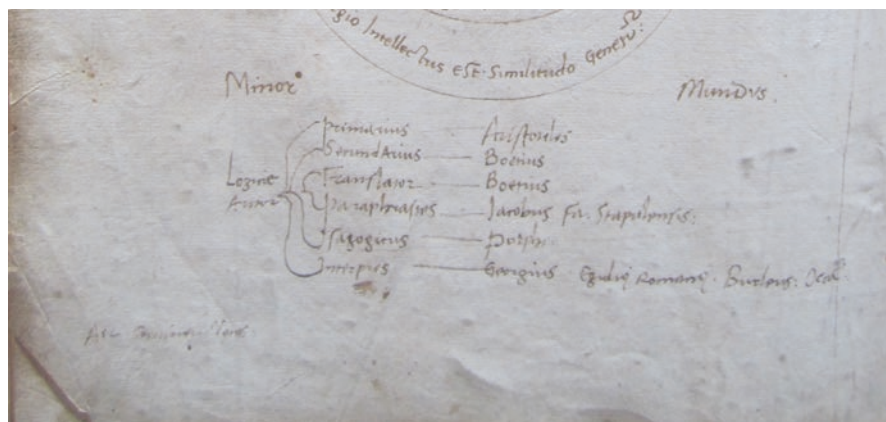 Intellectus EST Similitudo Generu:
Minor Mundus
Primarius Aristoteles
Secundarius Boetius
Logice Translator Boetius
Autor Paraphrastes Iacobus Fa. Stapulensis.
Isagogicus Porphi
Interpres Georgius Egidij Romanij. Burleus: